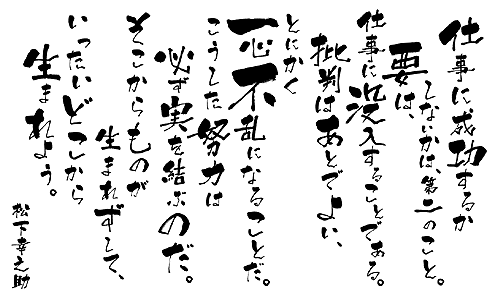 仕事に成功するか
しないかは、第二のこと。
要は、
仕事に没入することである。
批判はあとでよい、
とにかく
一心不乱になることだ。
こうした努力は
必ず実を結ぶのだ。
そこからものが
生まれずして、
いったいどこから
生まれよう。
松下幸之助